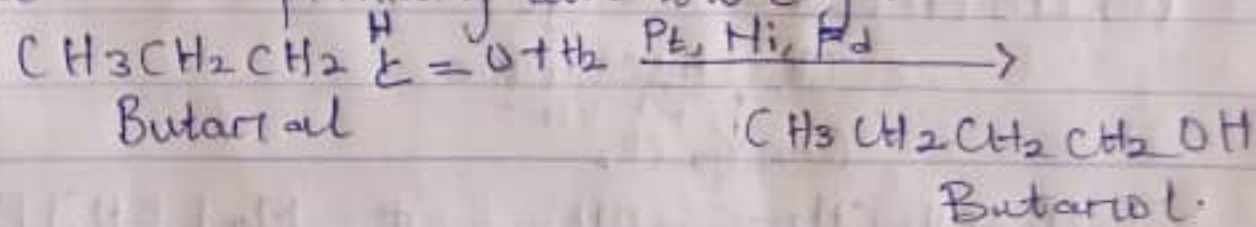 H
CH3CH2CH2 C = O + H2 Pt, Ni, Pd →
Butanal
CH3CH2CH2CH2OH
Butanol.